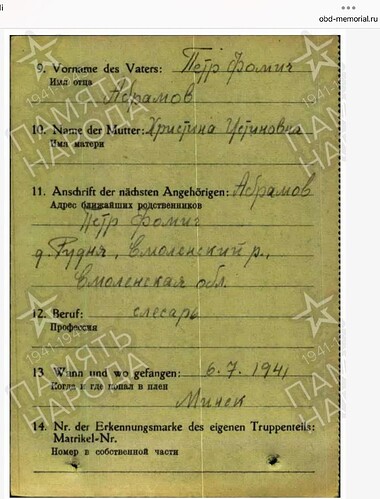 obd-memorial.ru
9. Vorname des Vaters: Петр Фомич
Имя отца
Абрамов
10. Name der Mutter: Христина Устиновна
Имя матери
11. Anschrift der nächsten Angehörigen: Абрамов
Адрес ближайших родственников
Петр Фомич
д. Рудня, Смоленский р.,
Смоленская обл.
12. Beruf: слесарь
Профессия
13 Wann und wo gefangen: 6.7.1941
Когда и где попал в плен
Минск
14. Nr. der Erkennungsmarke des eigenen Truppenteils:
Matrikel-Nr.
Номер в собственной части
1941-1945
ПАМЯТЬ
НАРОДА